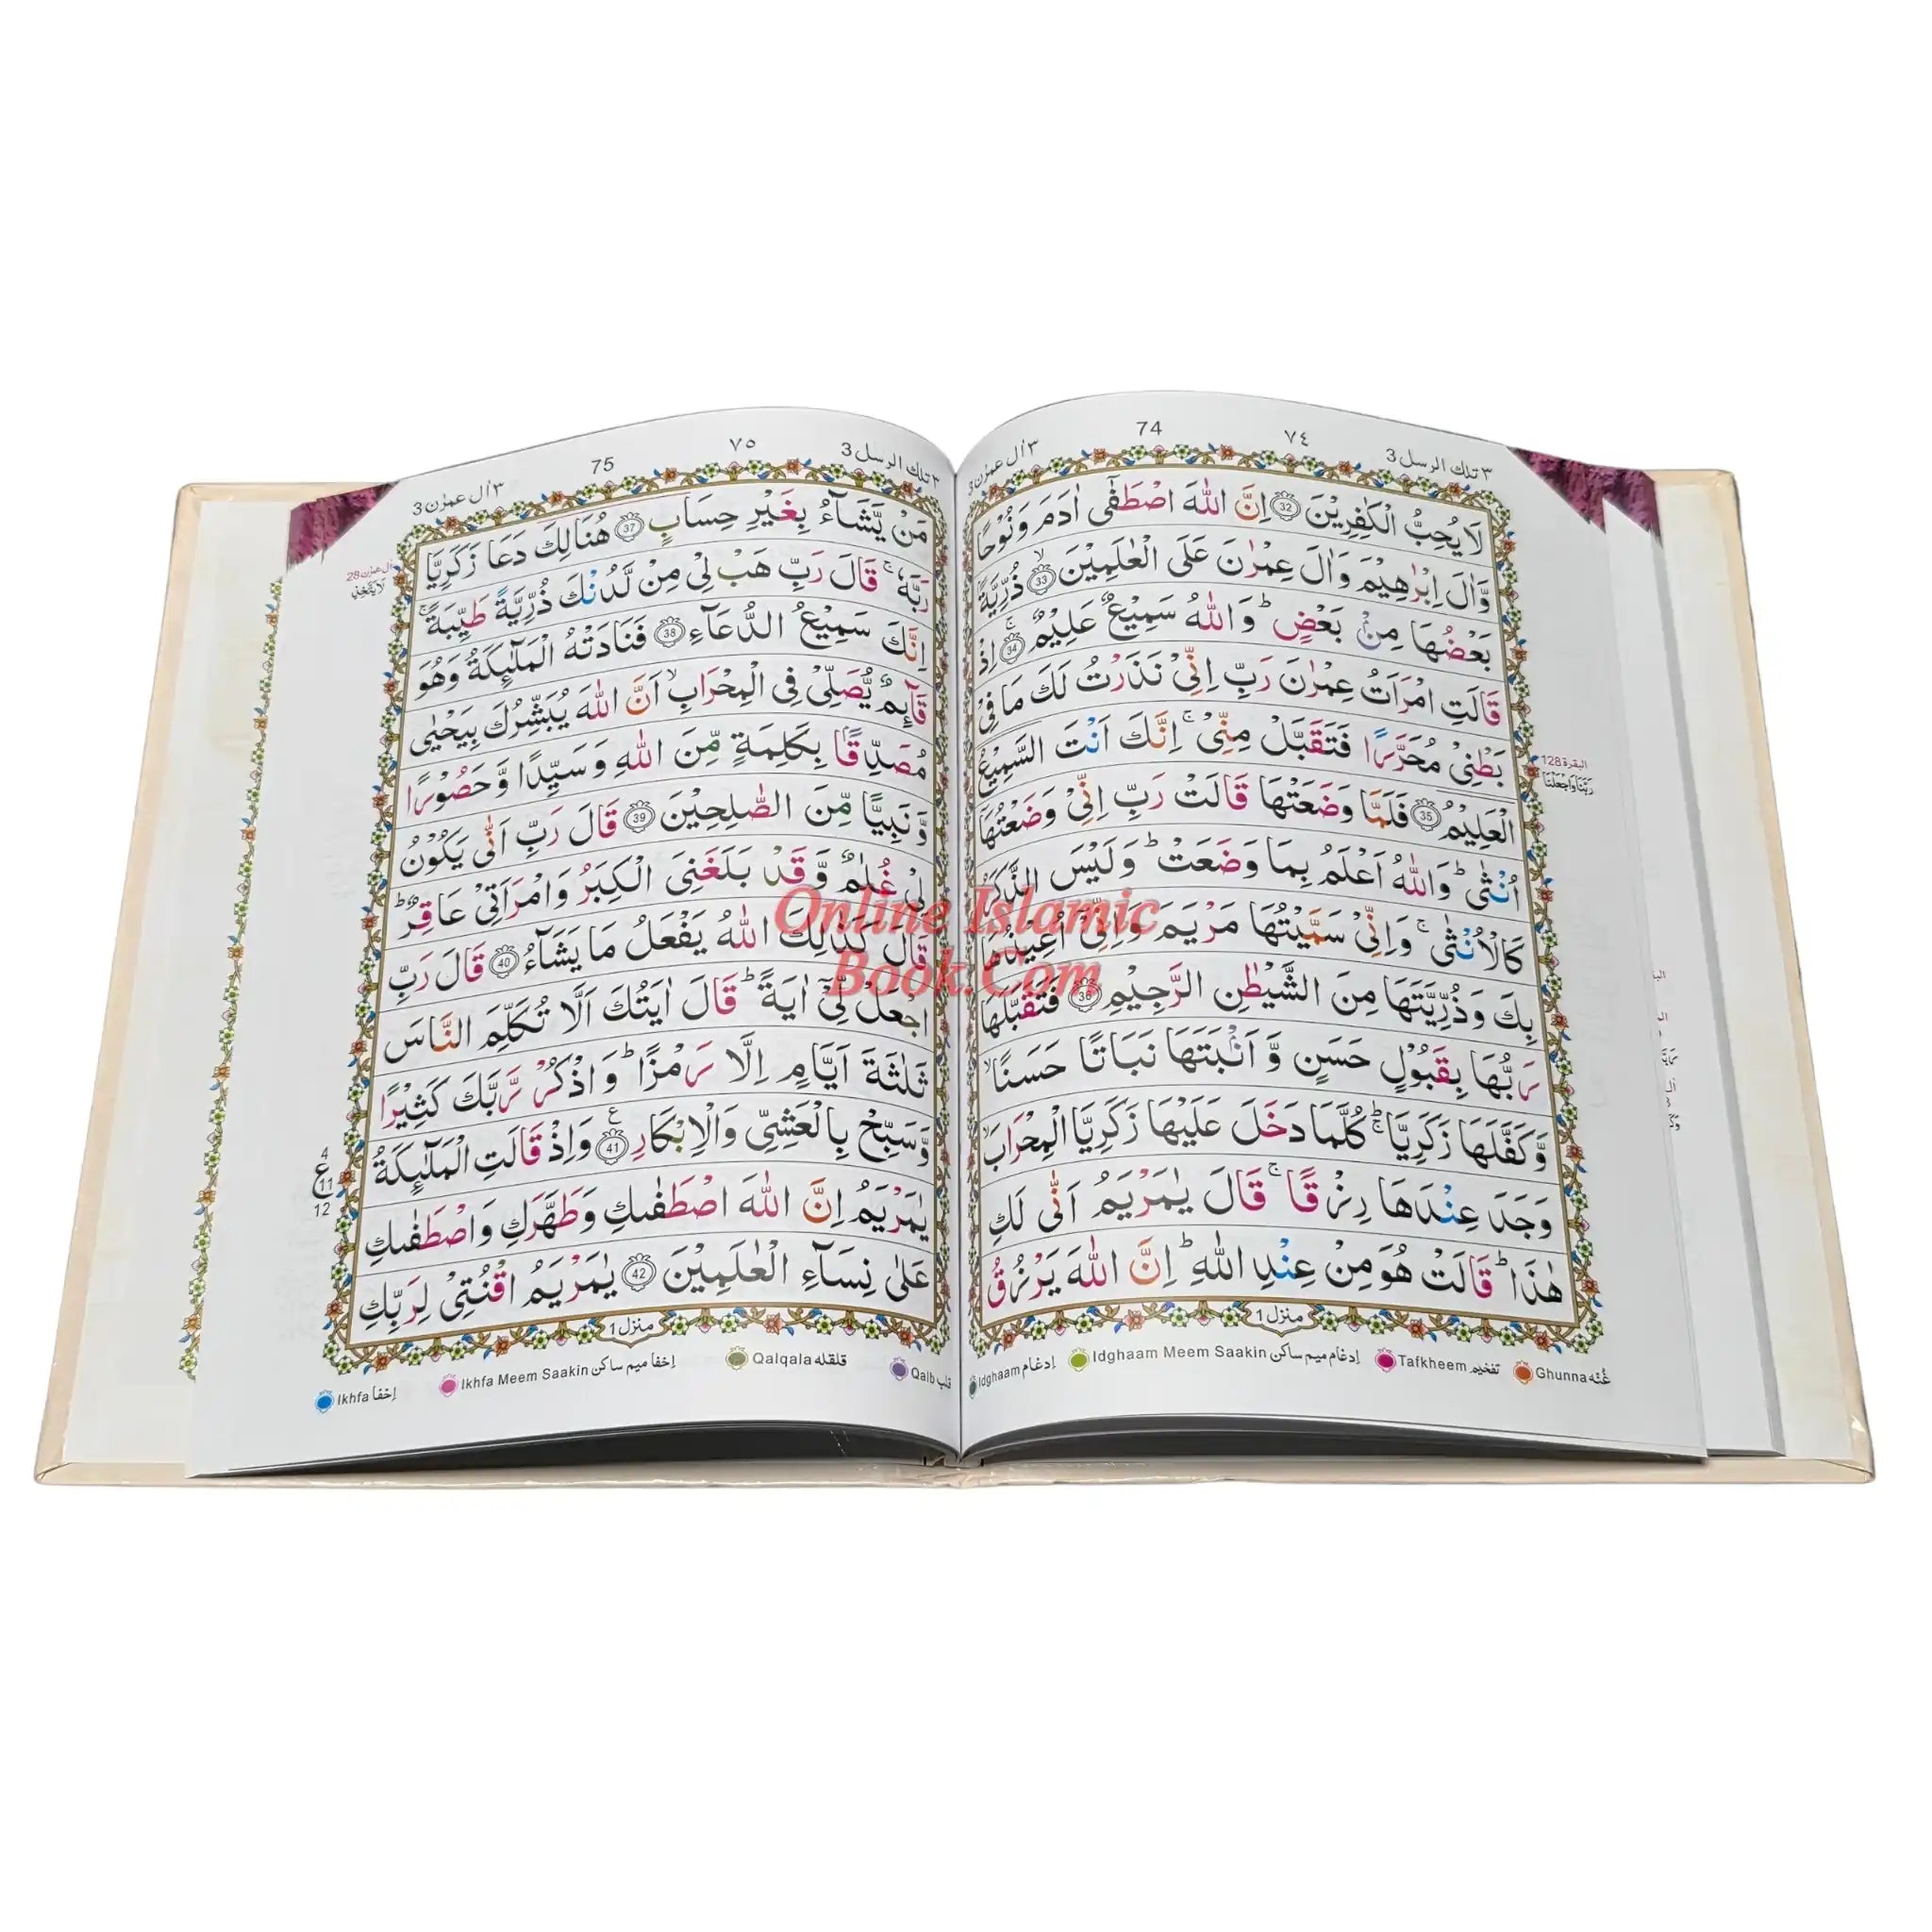 ٣ تلك الرسل 3
٧٤
74
٣ اٰل عمرٰن 3
لَا يُحِبُّ الْكٰفِرِيْنَ 32 اِنَّ اللّٰهَ اصْطَفٰۤى اٰدَمَ وَ نُوْحًا
وَّ اٰلَ اِبْرٰهِيْمَ وَ اٰلَ عِمْرٰنَ عَلَى الْعٰلَمِيْنَ ۙ 33 ذُرِّيَّةًۢ
بَعْضُهَا مِنْۢ بَعْضٍ ؕ وَ اللّٰهُ سَمِيْعٌ عَلِيْمٌ ۚ 34 اِذْ
قَالَتِ امْرَاَتُ عِمْرٰنَ رَبِّ اِنِّيْ نَذَرْتُ لَكَ مَا فِيْ
بَطْنِيْ مُحَرَّرًا فَتَقَبَّلْ مِنِّيْ ۚ اِنَّكَ اَنْتَ السَّمِيْعُ
الْعَلِيْمُ 35 فَلَمَّا وَضَعَتْهَا قَالَتْ رَبِّ اِنِّيْ وَضَعْتُهَاۤ
اُنْثٰى ؕ وَ اللّٰهُ اَعْلَمُ بِمَا وَضَعَتْ ؕ وَ لَيْسَ الذَّكَرُ
كَالْاُنْثٰى ۚ وَ اِنِّيْ سَمَّيْتُهَا مَرْيَمَ وَ اِنِّيْۤ اُعِيْذُهَا
بِكَ وَ ذُرِّيَّتَهَا مِنَ الشَّيْطٰنِ الرَّجِيْمِ 36 فَتَقَبَّلَهَا
رَبُّهَا بِقَبُوْلٍ حَسَنٍ وَّ اَنْۢبَتَهَا نَبَاتًا حَسَنًا ۙ
وَّ كَفَّلَهَا زَكَرِيَّا ؕۚ كُلَّمَا دَخَلَ عَلَيْهَا زَكَرِيَّا الْمِحْرَابَ ۙ
وَجَدَ عِنْدَهَا رِزْقًا ۚ قَالَ يٰمَرْيَمُ اَنّٰى لَكِ
هٰذَا ؕ قَالَتْ هُوَ مِنْ عِنْدِ اللّٰهِ ؕ اِنَّ اللّٰهَ يَرْزُقُ
منزل 1
البقرة 128
رَبَّنَا وَاجْعَلْنَا
٣ تلك الرسل 3
٧٥
75
٣ اٰل عمرٰن 3
مَنْ يَّشَآءُ بِغَيْرِ حِسَابٍ 37 هُنَالِكَ دَعَا زَكَرِيَّا
رَبَّهٗ ۚ قَالَ رَبِّ هَبْ لِيْ مِنْ لَّدُنْكَ ذُرِّيَّةً طَيِّبَةً ۚ
اِنَّكَ سَمِيْعُ الدُّعَآءِ 38 فَنَادَتْهُ الْمَلٰٓئِكَةُ وَ هُوَ
قَآئِمٌ يُّصَلِّيْ فِي الْمِحْرَابِ ۙ اَنَّ اللّٰهَ يُبَشِّرُكَ بِيَحْيٰى
مُصَدِّقًۢا بِكَلِمَةٍ مِّنَ اللّٰهِ وَ سَيِّدًا وَّ حَصُوْرًا
وَّ نَبِيًّا مِّنَ الصّٰلِحِيْنَ 39 قَالَ رَبِّ اَنّٰى يَكُوْنُ
لِيْ غُلٰمٌ وَّ قَدْ بَلَغَنِيَ الْكِبَرُ وَ امْرَاَتِيْ عَاقِرٌ ؕ
قَالَ كَذٰلِكَ اللّٰهُ يَفْعَلُ مَا يَشَآءُ 40 قَالَ رَبِّ
اجْعَلْ لِّيْۤ اٰيَةً ؕ قَالَ اٰيَتُكَ اَلَّا تُكَلِّمَ النَّاسَ
ثَلٰثَةَ اَيَّامٍ اِلَّا رَمْزًا ؕ وَ اذْكُرْ رَّبَّكَ كَثِيْرًا
وَّ سَبِّحْ بِالْعَشِيِّ وَ الْاِبْكَارِ 41 ع وَ اِذْ قَالَتِ الْمَلٰٓئِكَةُ
يٰمَرْيَمُ اِنَّ اللّٰهَ اصْطَفٰىكِ وَ طَهَّرَكِ وَ اصْطَفٰىكِ
عَلٰى نِسَآءِ الْعٰلَمِيْنَ 42 يٰمَرْيَمُ اقْنُتِيْ لِرَبِّكِ
منزل 1
اٰل عمرٰن 28
4
ع 11
12
Online Islamic
Book.Com
Ikhfa اِخفا
Ikhfa Meem Saakin اِخفا میم ساکن
Qalqala قلقلہ
Qalb قلب
Idghaam اِدغام
Idghaam Meem Saakin اِدغام میم ساکن
Tafkheem تفخیم
Ghunna غُنّہ